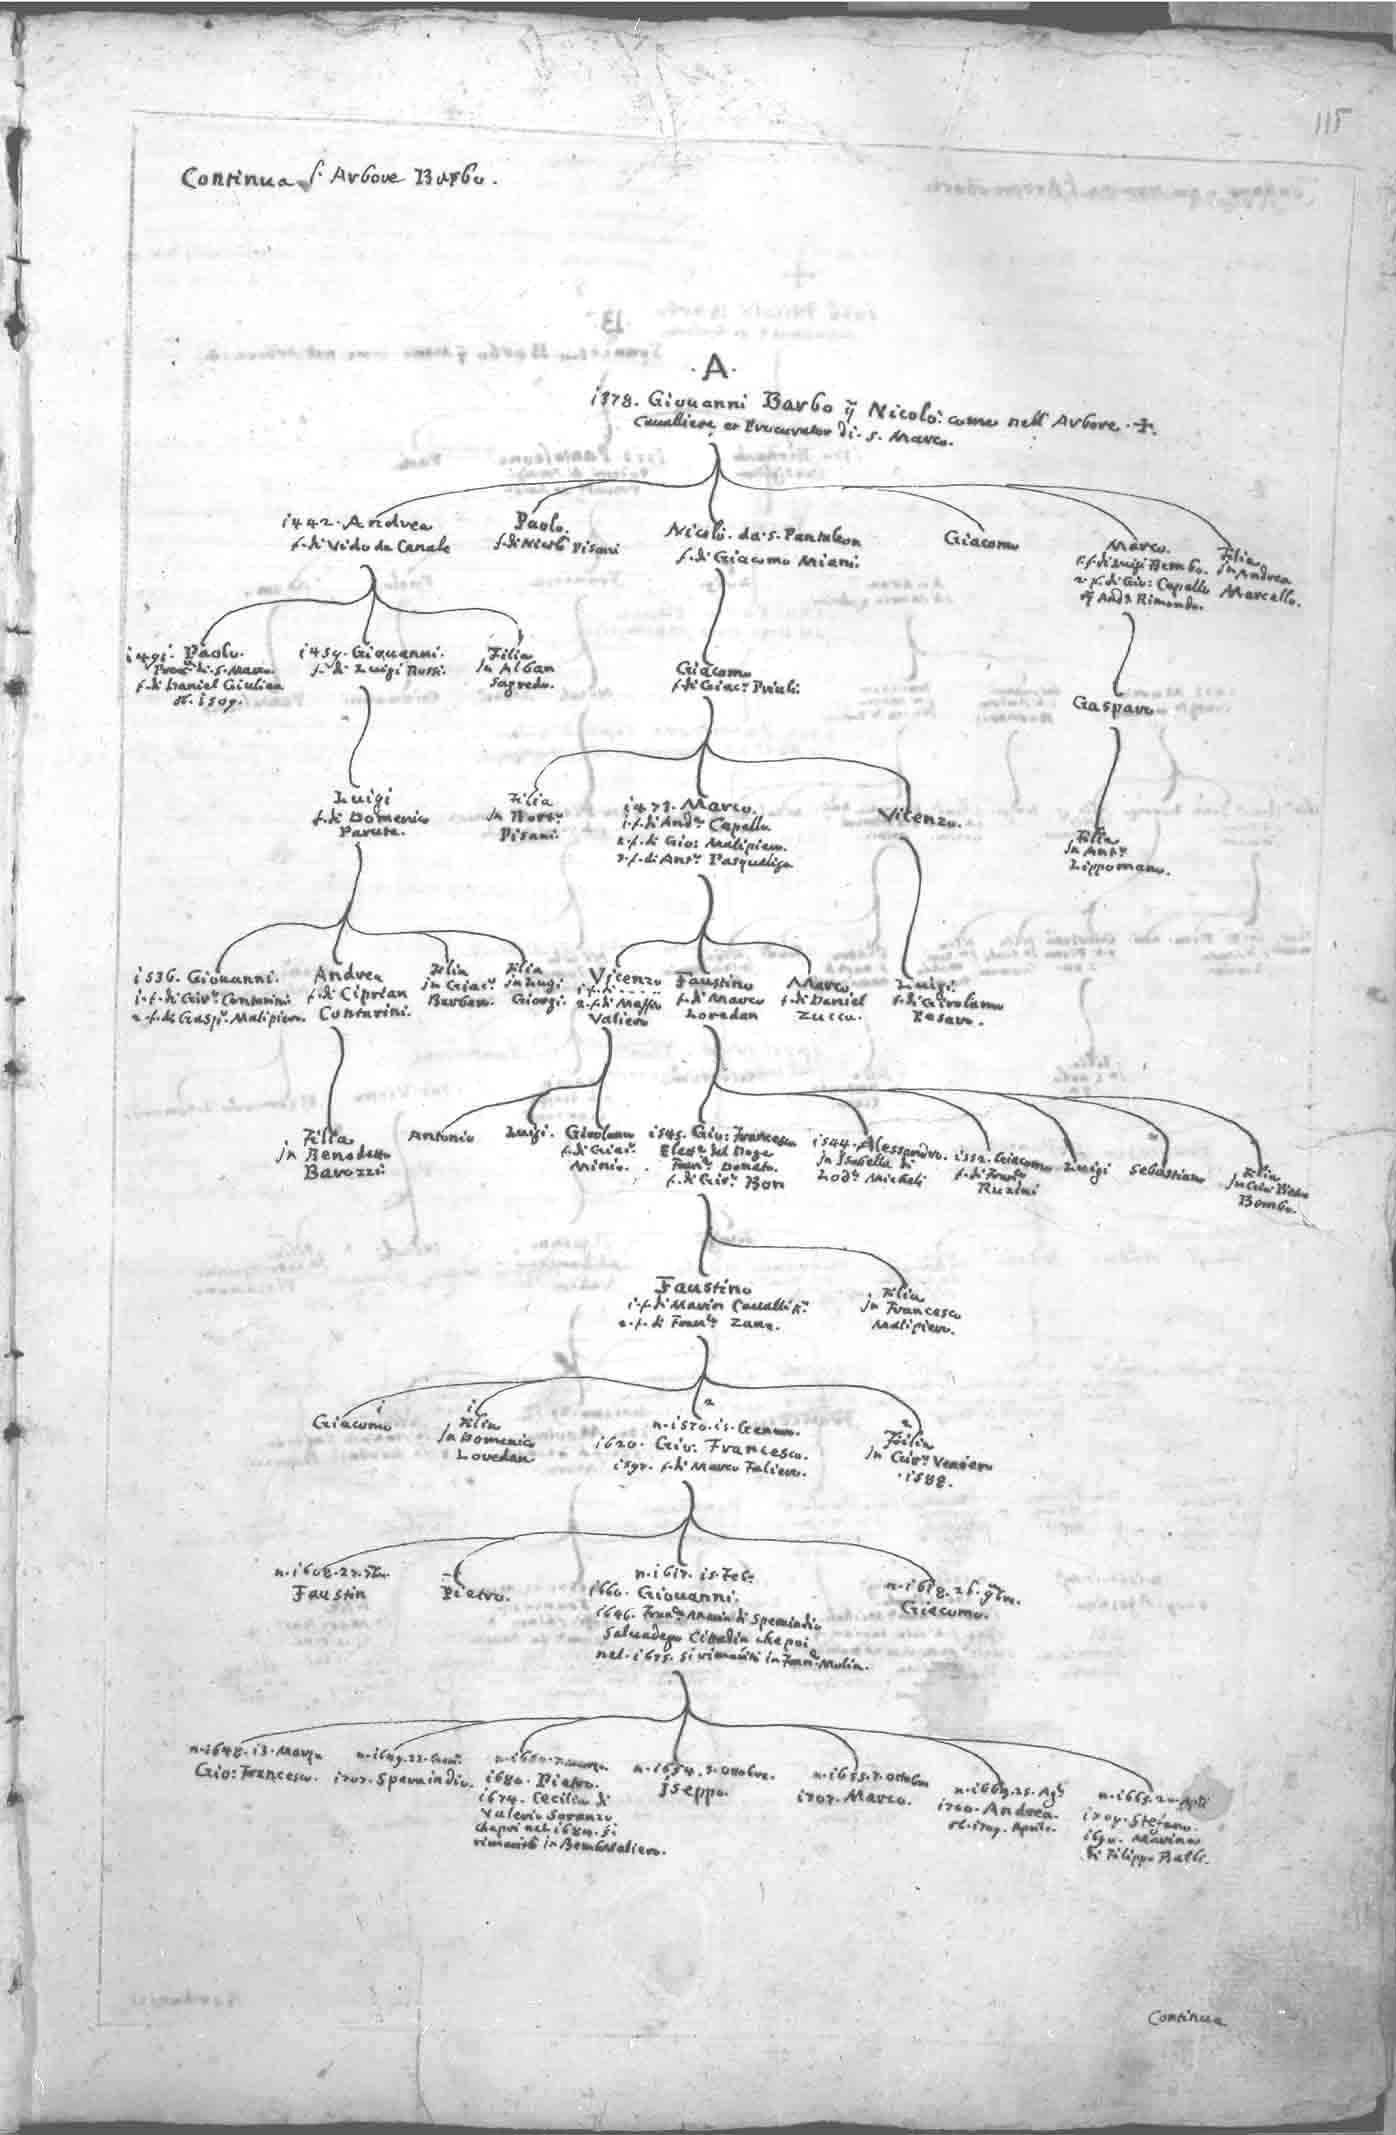 115
Continua l'Arbore Barbo.
·A·
1378. Giovanni Barbo q̃ Nicolò: come nell'Arbore ✢.
Cavalliere et Procurator di S. Marco.
1442. Andrea
f. di Vido da Canale
Paolo.
f. di Nicolò Pisani
Nicolò da S. Pantaleon
f. di Giacomo Miani.
Giacomo
Marco.
1. f. di Luigi Bembo.
2. f. di Gio: Capello
q̃ And.ª Rimondo.
Filia
in Andrea
Marcello.
1491. Paolo.
Proc.r di S. Marco.
f. di Daniel Giulian
ob. 1509.
1459. Giovanni.
f. di Luigi Rossi.
Filia
in Alban
Sagredo.
Giacomo
f. di Giac.º Priuli.
Gasparo
Luigi
f. di Domenico
Paruta.
Filia
in
Pisani.
1473. Marco.
1. f. di And.ª Capello.
2. f. di Gio: Malipiero.
3. f. di Ant.º Pasqualigo
Vicenzo.
Filia
in Ant.º
Lippomano.
1536. Giovanni.
1. f. di Gir.º Contarini
2. f. di Gasp.º Malipiero.
Andrea
f. di Ciprian
Contarini.
Filia
in Giac.º
Barbaro.
Filia
in Luigi
Giorgi.
Vicenzo
1. f. di .....
2. f. di Maffio
Valiero
Faustino
f. di Marco
Loredan
Marco
f. di Daniel
Zucco.
Luigi.
f. di Girolamo
Pesaro.
Filia
in Benedetto
Barozzi
Antonio
Luigi.
Girolamo
f. di Giac.º
Minio.
1545. Gio: Francesco
Elett.r del Doge
Franc.º Donato.
f. di Gir.º Bon
1544. Alessandro.
in Isabella di
Lod.º Micheli
1552. Giacomo
f. di Franc.º
Ruzini
Luigi
Sebastiano
Filia
in
Bembo.
Faustino
1. f. di Marin Cavalli K.r
2. f. di Franc.º Zane.
Filia
in Francesco
Malipiero.
1
Giacomo
1
Filia
in Domenico
Loredan
2
n. 1570. 15. Genaro.
1620. Gio: Francesco.
1597. f. di Marco Falier.
2
Filia
in Gir.º Veniero
1588.
n. 1608. 27. 7bre.
Faustin
Pietro.
n. 1617. 15. Feb.
1660. Giovanni.
1646. Franc.ª Maria di Speraindio
Salvadego Cittadin che poi
nel 1675. si rimaritò in Franc.º Molin.
n. 1618. 26. 9bre.
Giacomo.
n. 1648. 13. Marzo
Gio: Francesco.
n. 1649. 22.
1707. Speraindio.
n. 1650. 7. Marzo.
1680. Pietro.
1674. Cecilia di
Valerio Soranzo
che poi nel 1684. si
rimaritò in Bembo Valiero.
n. 1654. 5. Ottobre.
Iseppo.
n. 1655. 7. Ottobre
1707. Marco.
n. 1660. 25. Ag.º
1700. Andrea.
ob. 1709. Aprile.
n. 1665. 20. Apli
1709. Stefano.
1690. Marina
di Filippo Balbi.
Continua